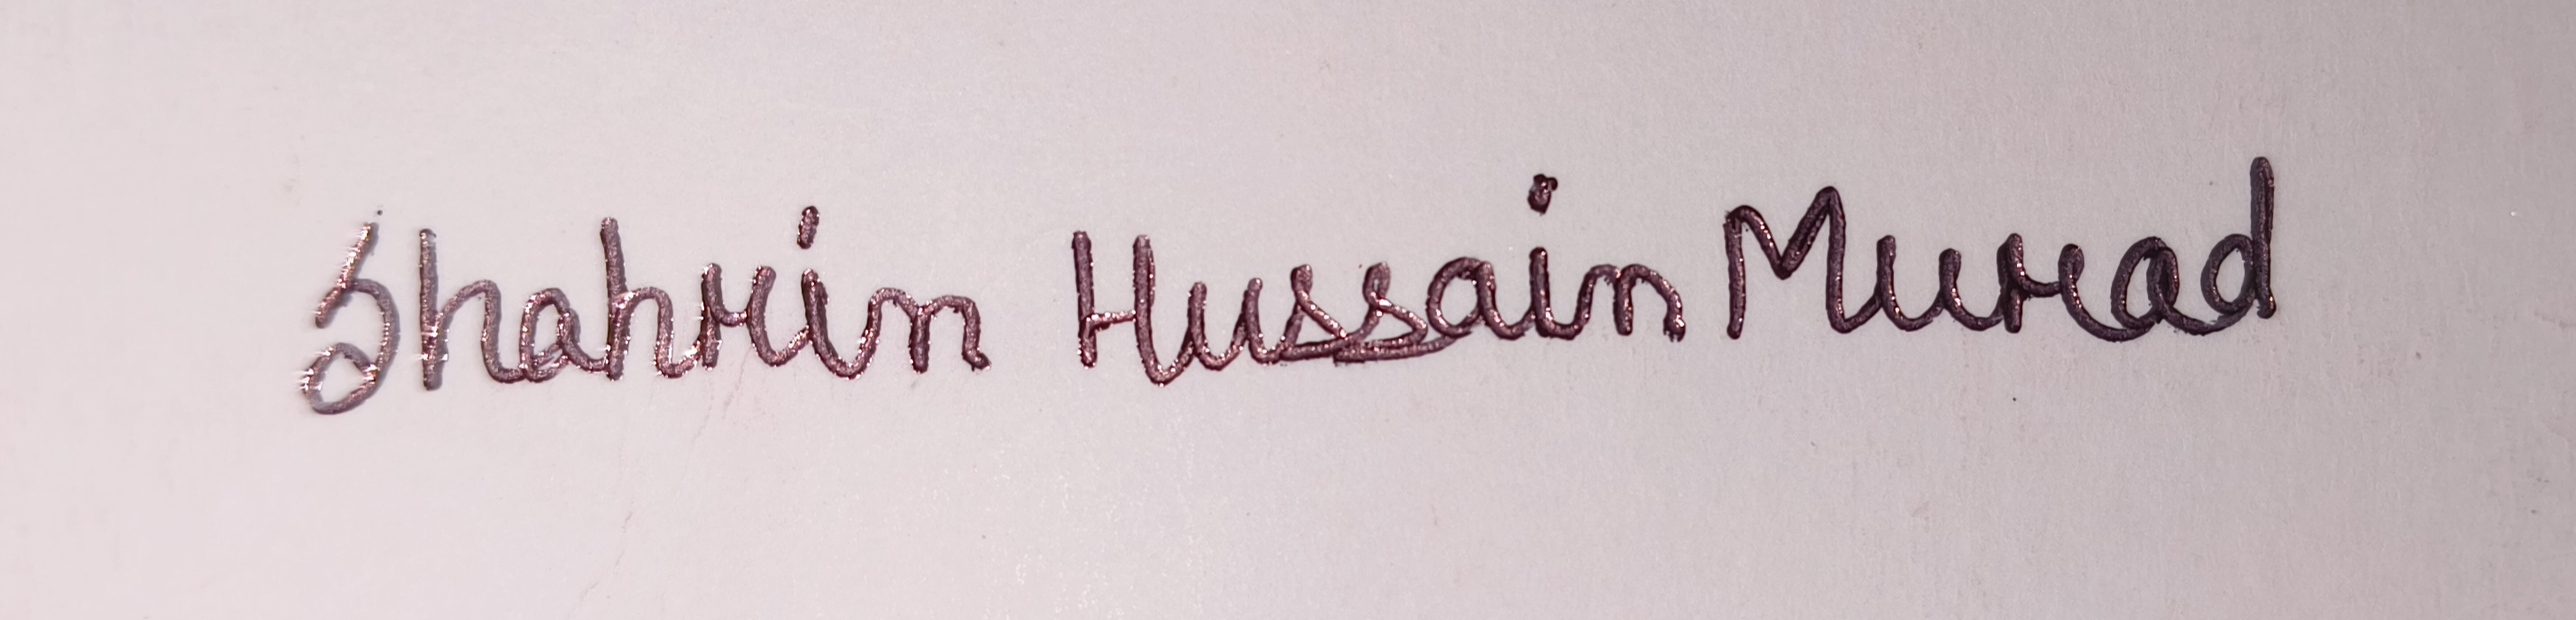 Shahrin Hussain Murad